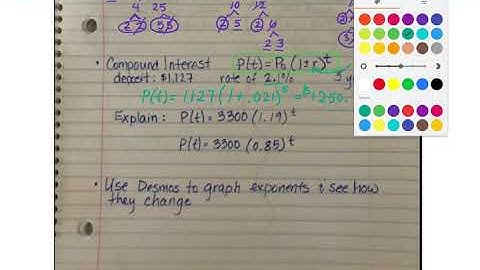 4 25 10 12
2 2 5 5 2 5 2 6
2 3
• Compound Interest P(t) = P₀ (1±r)^t
deposit: $1,127 rate of 2.1% 5 y
P(t) = 1127 (1+.021)^5 = $1250.
Explain: P(t) = 3300 (1.19)^t
P(t) = 3300 (0.85)^t
• Use Desmos to graph exponents & see how
they change